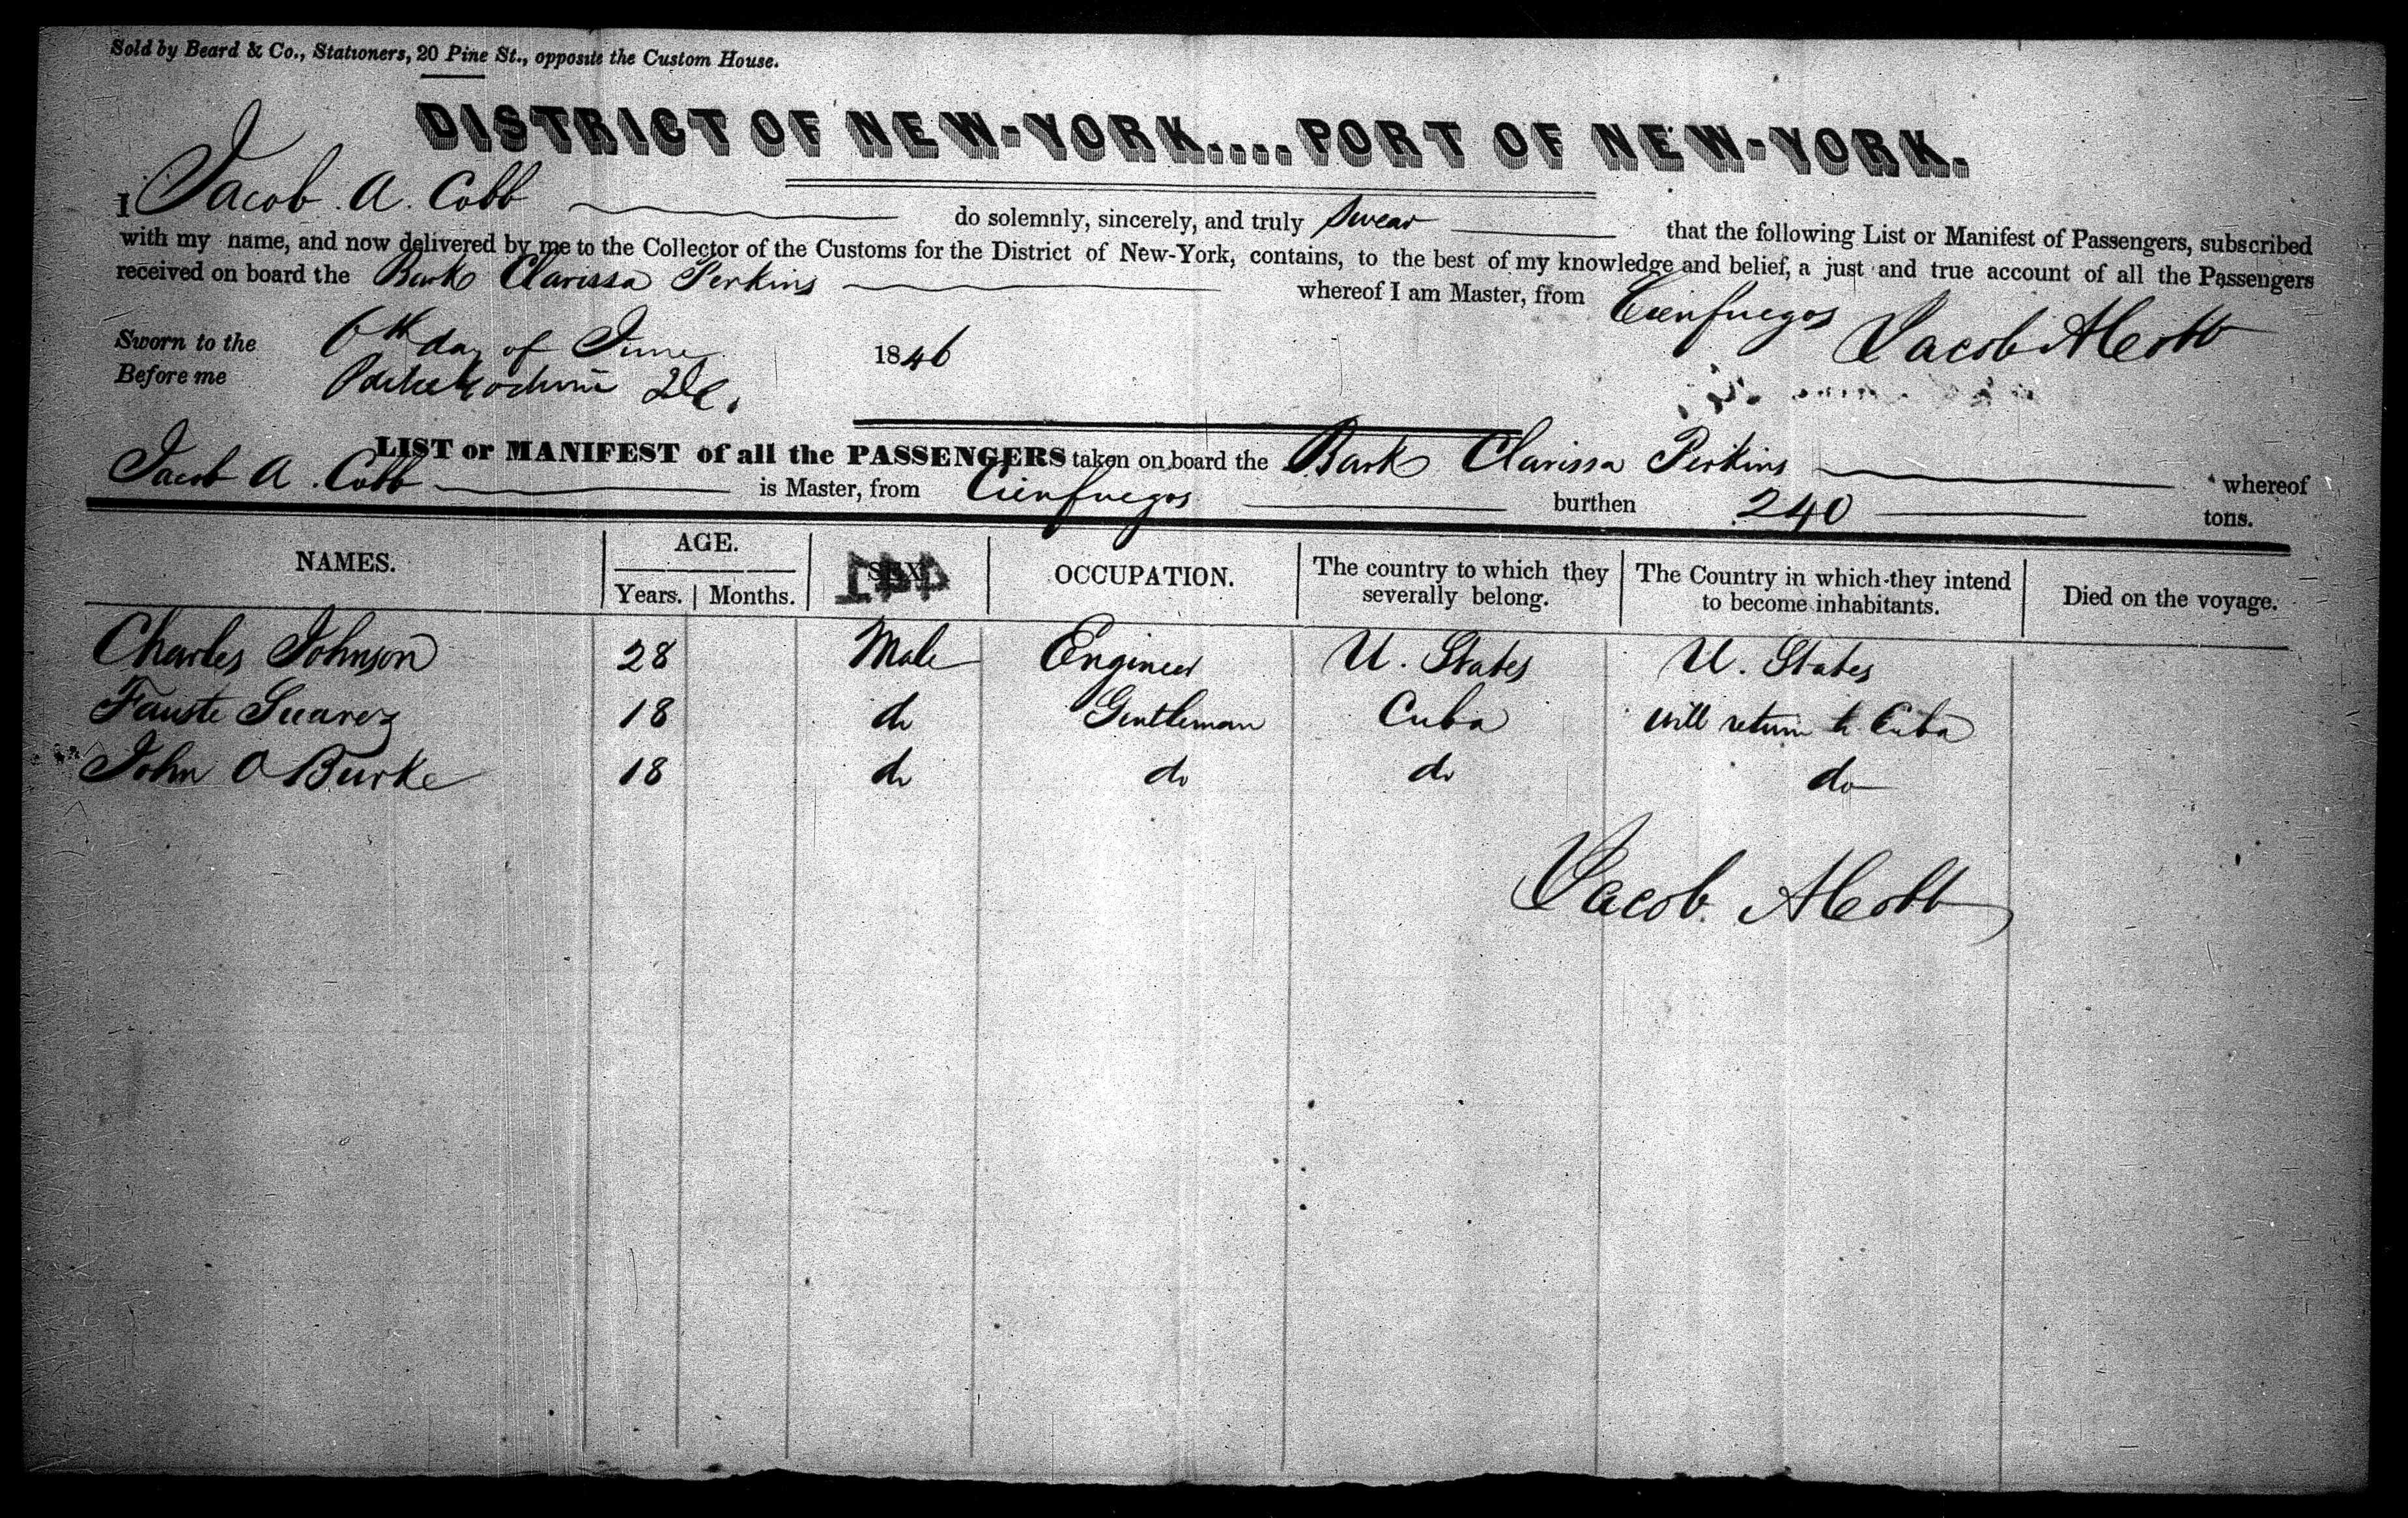 Sold by Beard & Co., Stationers, 20 Pine St., opposite the Custom House.
DISTRICT OF NEW-YORK....PORT OF NEW-YORK.
I Jacob. A. Cobb do solemnly, sincerely, and truly swear that the following List or Manifest of Passengers, subscribed
with my name, and now delivered by me to the Collector of the Customs for the District of New-York, contains, to the best of my knowledge and belief, a just and true account of all the Passengers
received on board the Bark Clarissa Perkins whereof I am Master, from Cienfuegos
Sworn to the 6th day of June 1846 Jacob A Cobb
Before me
LIST or MANIFEST of all the PASSENGERS taken on board the Bark Clarissa Perkins whereof
Jacob A. Cobb is Master, from Cienfuegos burthen 240 tons.
NAMES. AGE. SEX. OCCUPATION. The country to which they severally belong. The Country in which they intend to become inhabitants. Died on the voyage.
Years. Months.
441
Charles Johnson 28 Male Engineer U. States U. States
Fauste Suarez 18 do Gentleman Cuba will return to Cuba
John O Burke 18 do do do do
Jacob. A Cobb